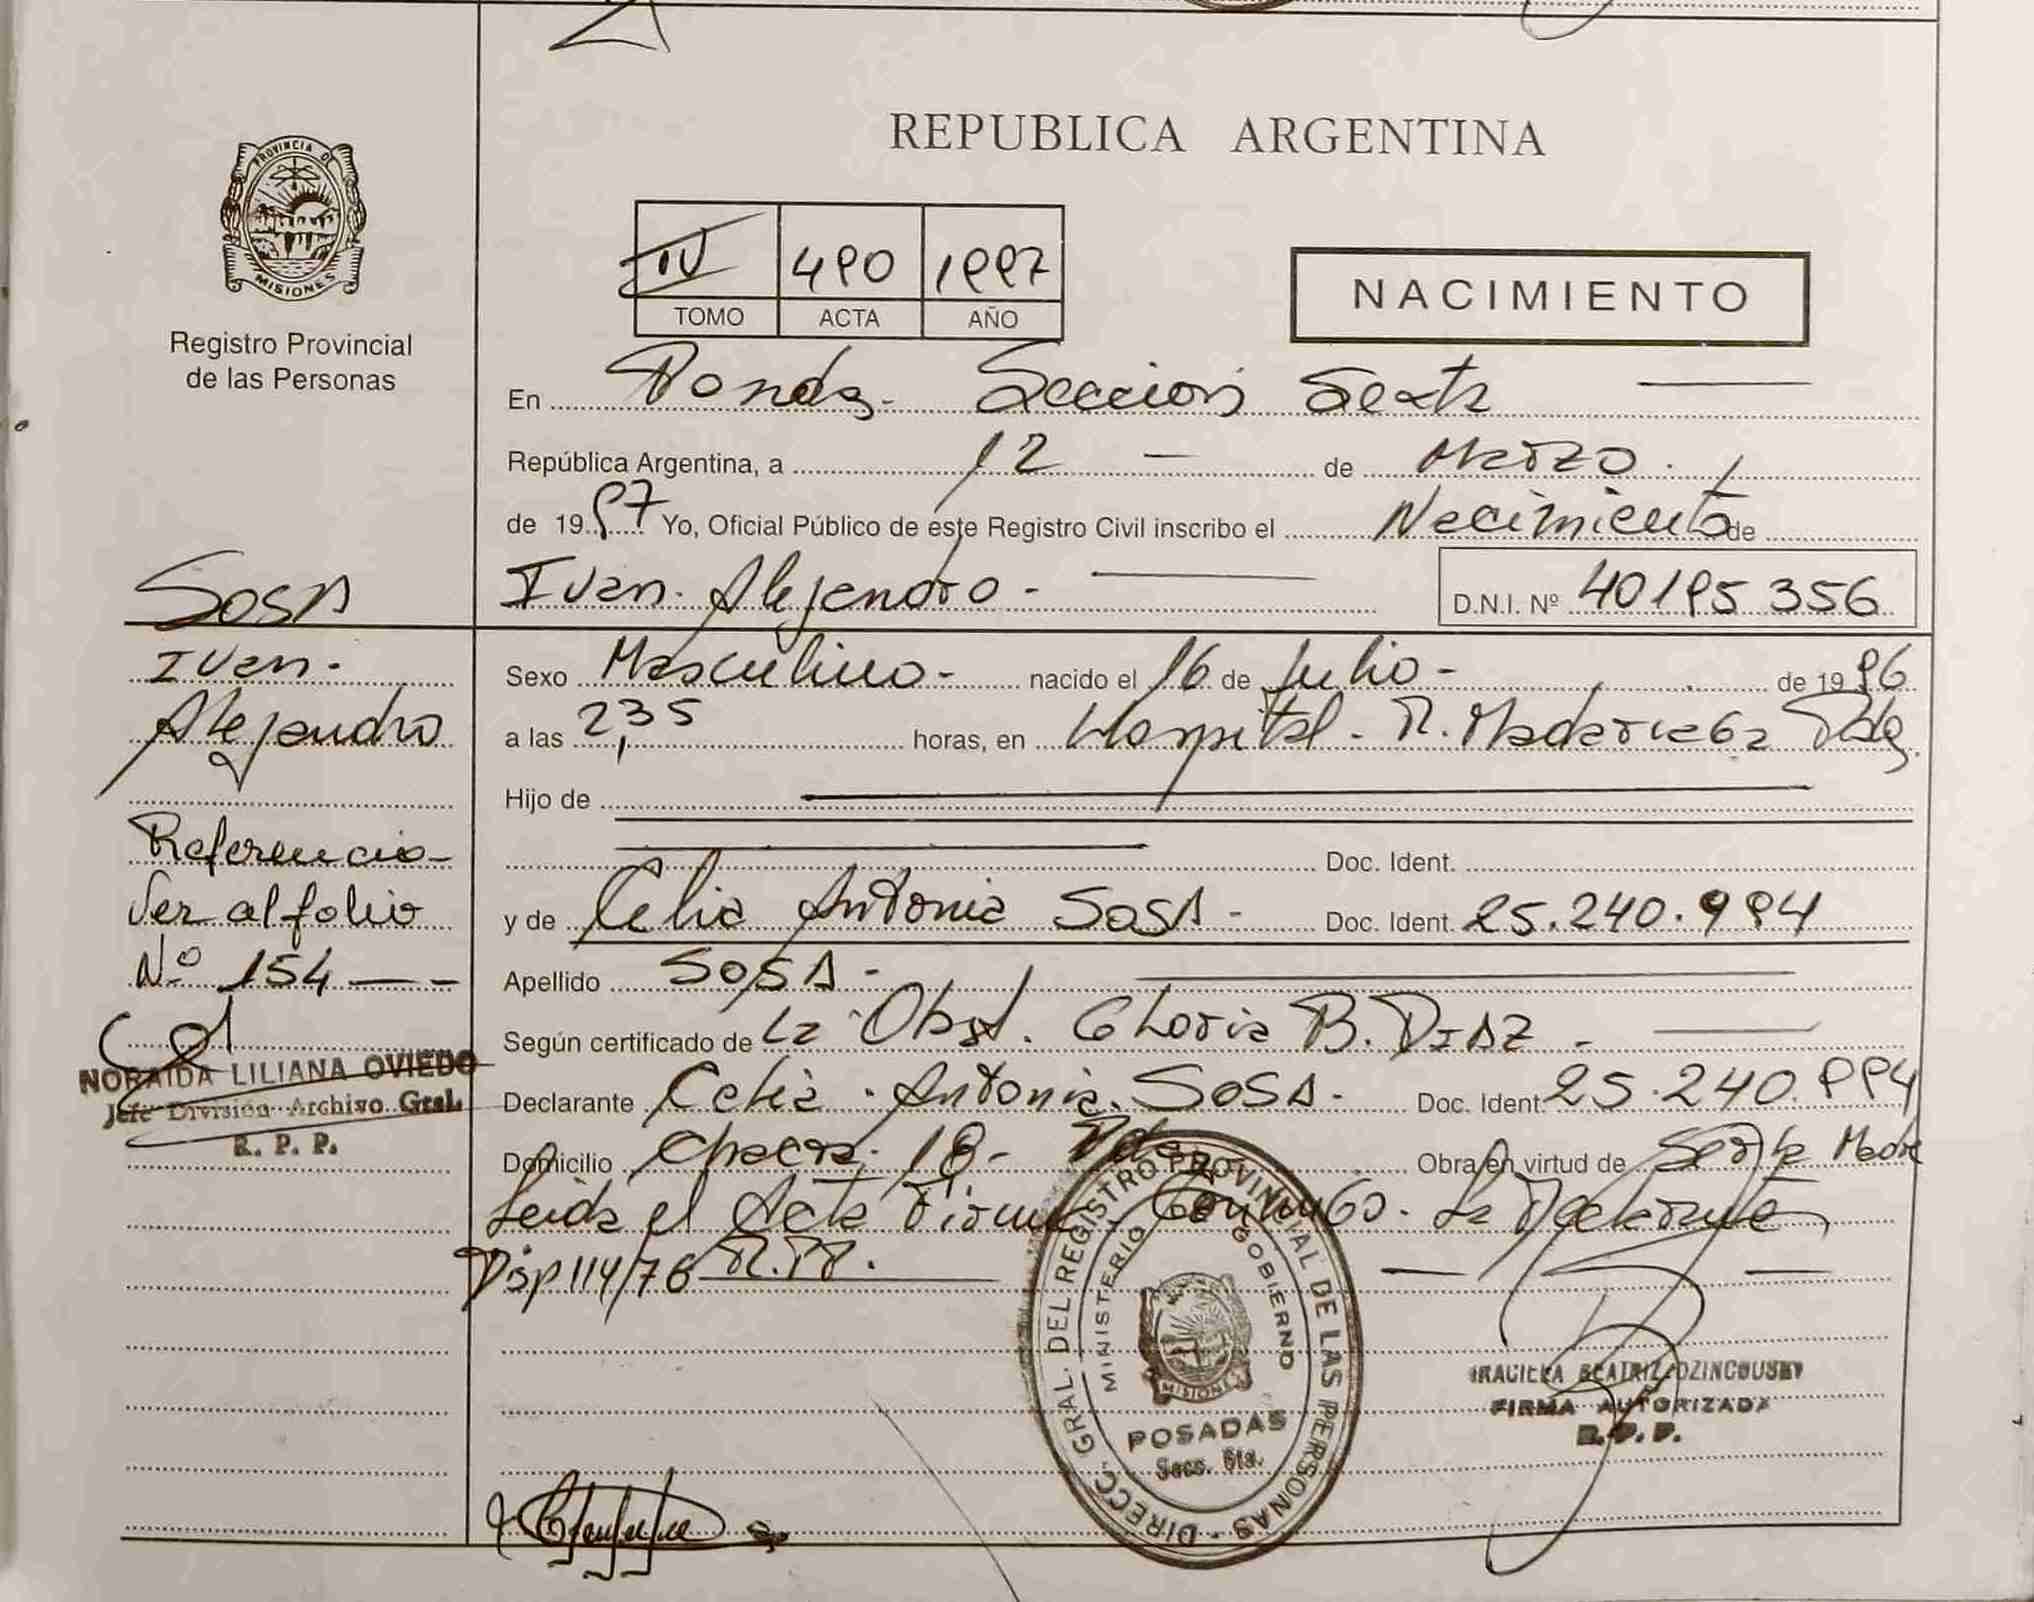 REPUBLICA ARGENTINA
PROVINCIA DE
MISIONES
Registro Provincial
de las Personas
IV 490 1997
TOMO ACTA AÑO
NACIMIENTO
En Posadas - Sección Sexta
República Argentina, a 12 de Marzo
de 1997 Yo, Oficial Público de este Registro Civil inscribo el Nacimiento de
SOSA
Ivan. Alejandro - D.N.I. Nº 40195356
Ivan.
Alejandro
Sexo Masculino - nacido el 16 de Julio - de 1996
a las 2,35 horas, en Hospital - R. Madariaga Pdas.
Hijo de
Doc. Ident.
y de Celia Antonia SOSA - Doc. Ident. 25.240.994
Apellido SOSA -
Según certificado de La Obst. Gloria B. DIAZ -
Declarante Celia Antonia SOSA - Doc. Ident. 25.240.994
Domicilio Chacra 18 - Pdas Obra en virtud de Ser la Madre
Leida el Acta Firma Conmigo. La Declarante
Disp 114/76 R.P.P.
Referencia -
Ver al folio
Nº 154
NORAIDA LILIANA OVIEDO
Jefe División Archivo Gral.
R. P. P.
DIRECC. GRAL. DEL REGISTRO PROVINCIAL DE LAS PERSONAS
MINISTERIO GOBIERNO
MISIONES
POSADAS
Secc. 6ta.
BEATRIZ
FIRMA AUTORIZADA
R. P. P.